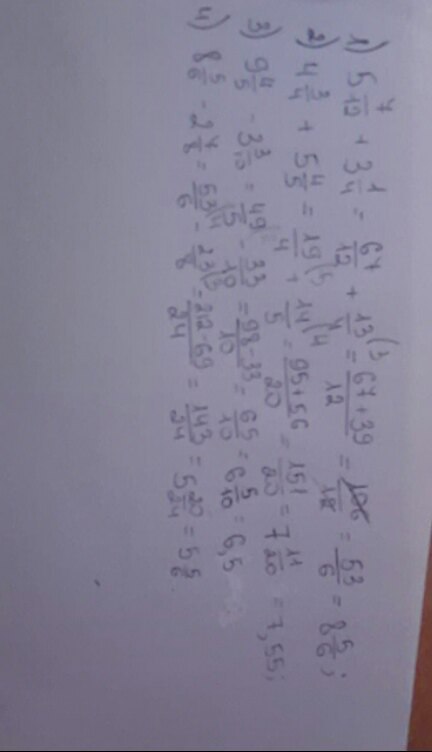 1) 5 7/12 + 3 1/4 = 67/12 + 13/4 (3 = 67+39/12 = 106/12 = 53/6 = 8 5/6;
2) 4 3/4 + 5 4/5 = 19/4 (5 + 14/5 (4 = 95+56/20 = 151/20 = 7 11/20 = 7,55;
3) 9 4/5 - 3 3/10 = 49/5 - 33/10 = 98-33/10 = 65/10 = 6 5/10 = 6,5
4) 8 5/6 - 2 7/8 = 53/6 (4 - 23/8 (3 = 212-69/24 = 143/24 = 5 20/24 = 5 5/6